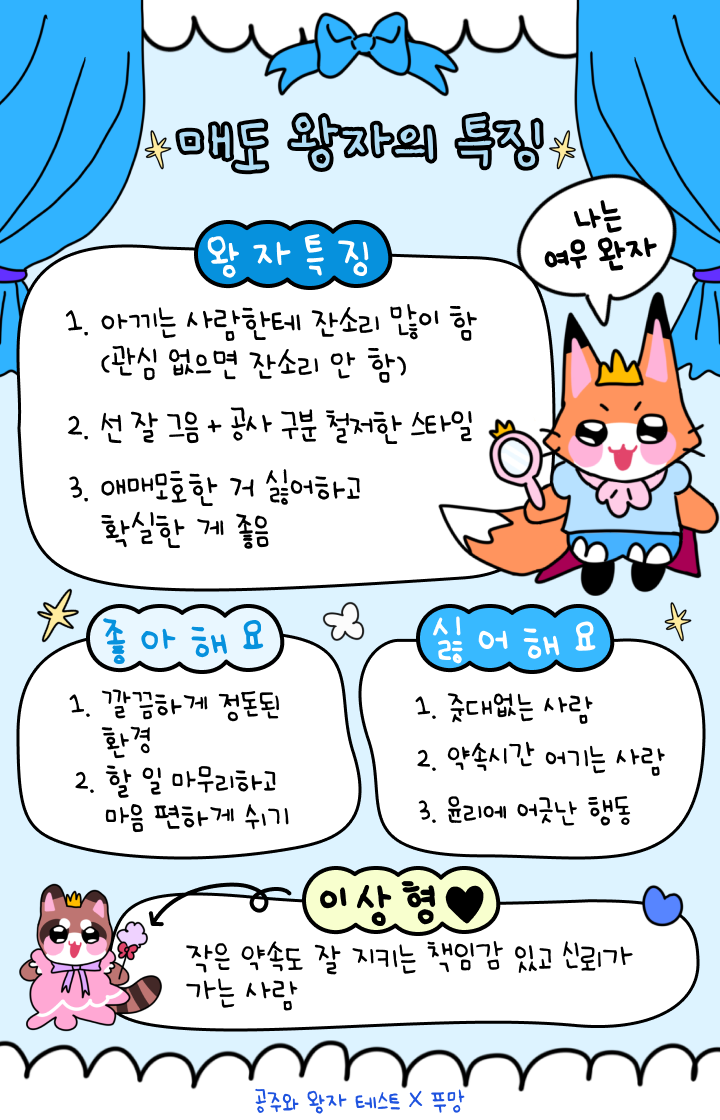 매도 왕자의 특징
나는
여우 완자
왕자특징
1. 아끼는 사람한테 잔소리 많이 함
(관심 없으면 잔소리 안 함)
2. 선 잘 그음 + 공사 구분 철저한 스타일
3. 애매모호한 거 싫어하고
확실한 게 좋음
좋아해요
1. 깔끔하게 정돈된
환경
2. 할 일 마무리하고
마음 편하게 쉬기
싫어해요
1. 줏대없는 사람
2. 약속시간 어기는 사람
3. 윤리에 어긋난 행동
이상형♥
작은 약속도 잘 지키는 책임감 있고 신뢰가
가는 사람
공주와 왕자 테스트 X 푸망